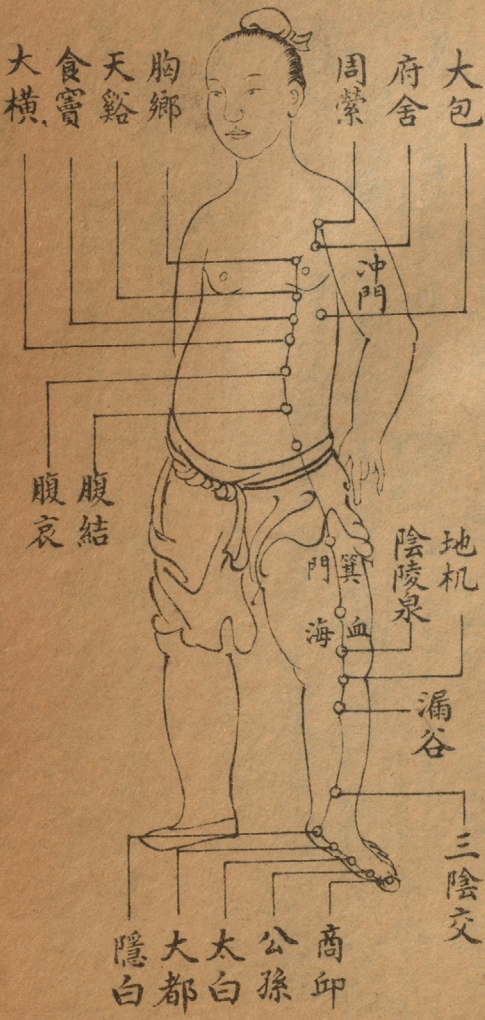 大包
府舍
周榮
胸鄉
天谿
食竇
大橫
冲門
腹結
腹哀
地机
陰陵泉
箕門
血海
漏谷
三陰交
商邱
公孫
太白
大都
隱白